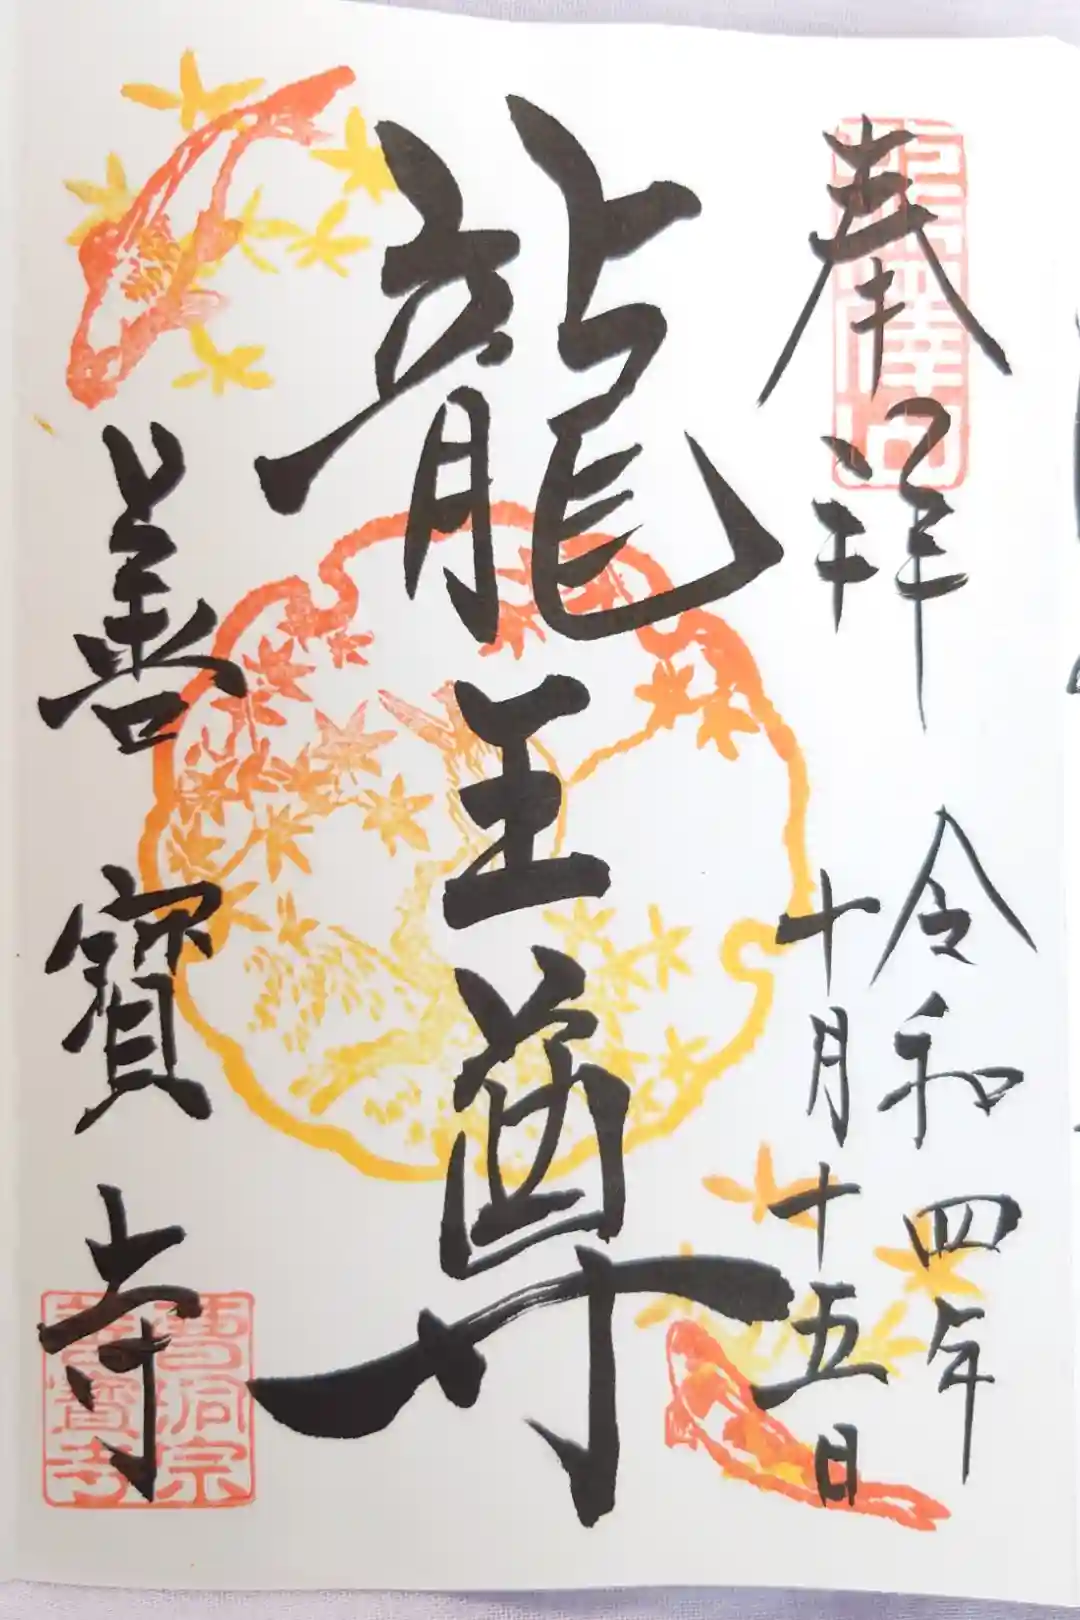 奉拝
令和四年
十月十五日
龍王尊
善寳寺
曹洞宗
善寳寺